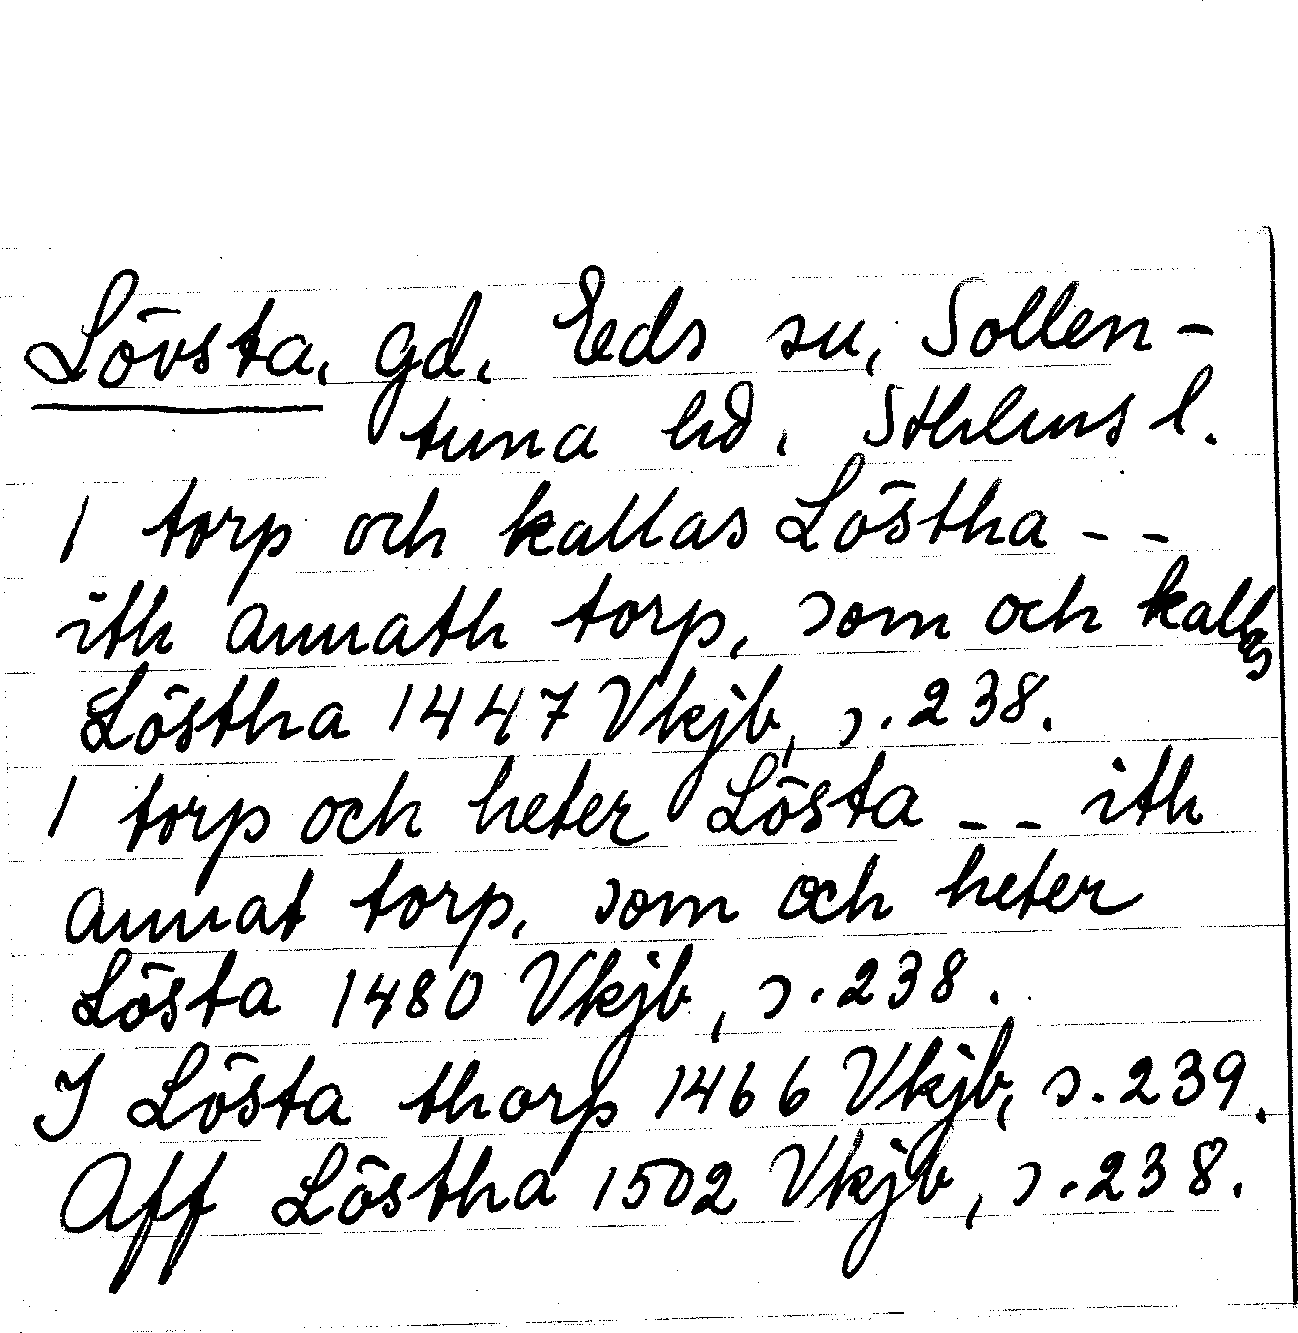 Lövsta, gd, Eds sn, Sollen-
tuna hd, Sthlms l.
1 torp och kallas Löstha - -
ith annath torp, som och kallas
Löstha 1447 Vkjb, s. 238.
1 torp och heter Lösta - - ith
annat torp, som och heter
Lösta 1480 Vkjb, s. 238.
I Lösta thorp 1466 Vkjb, s. 239.
Aff Löstha 1502 Vkjb, s. 238.